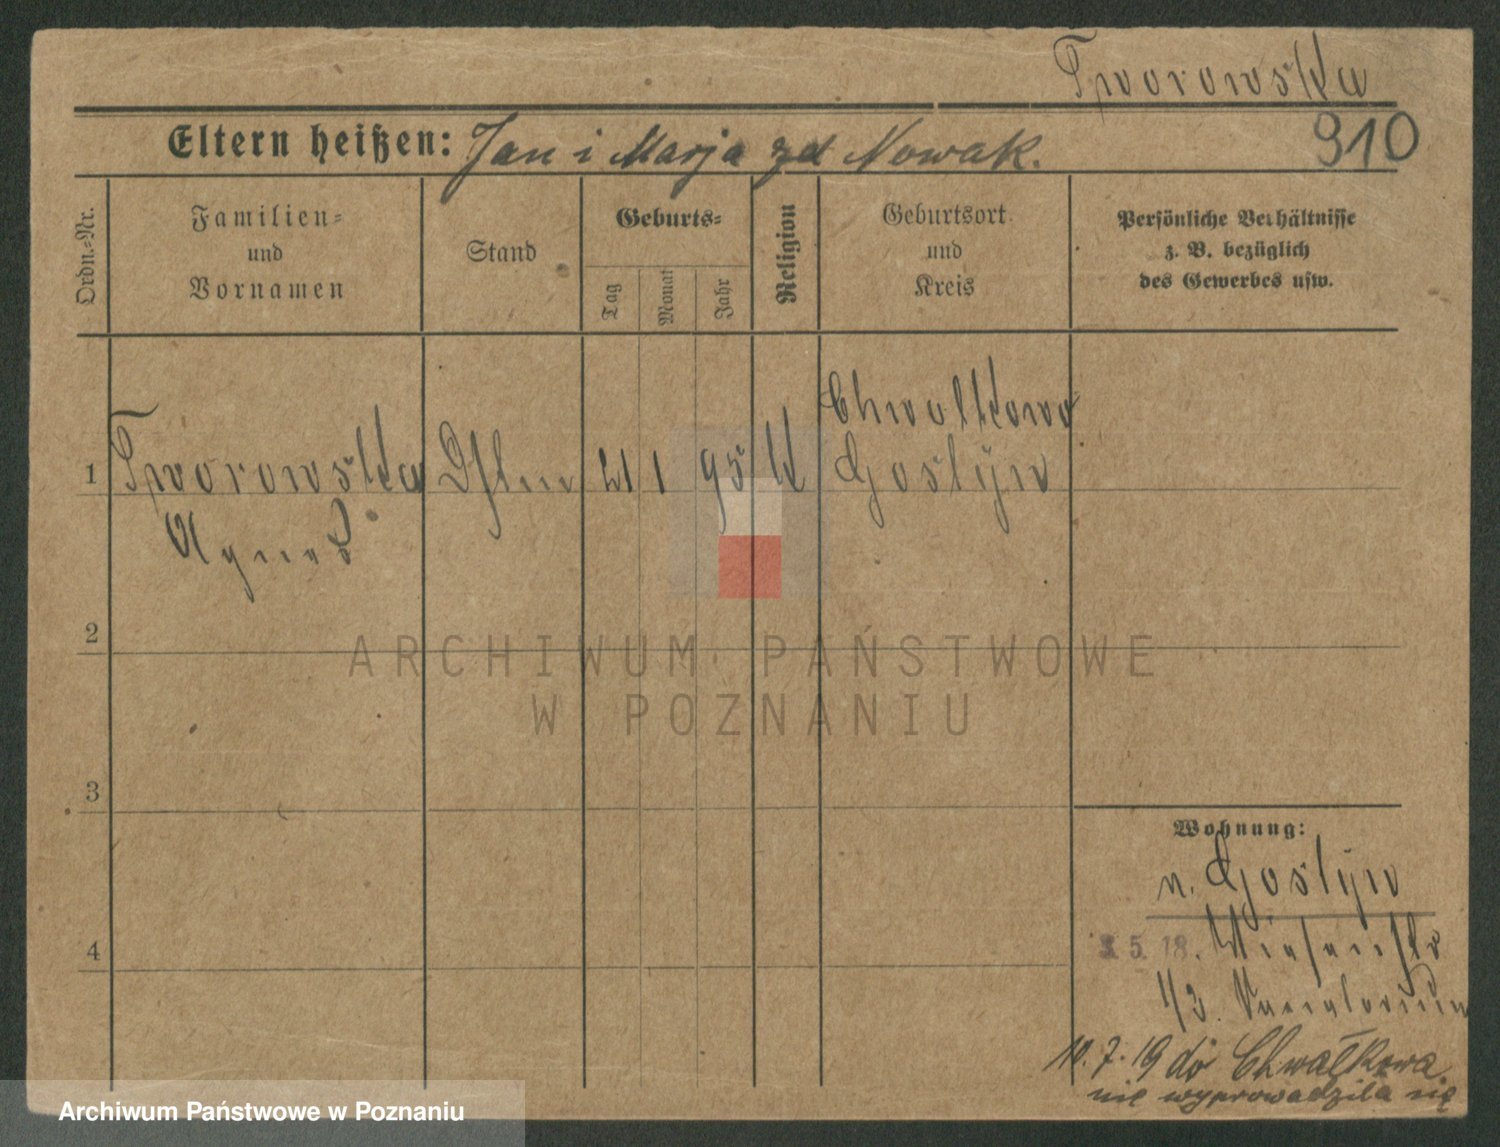 Tworowska
910
Eltern heißen: Jan i Marja zd Nowak.
Ordn.=Nr.
Familien=
und
Vornamen
Stand
Geburts=
Tag
Monat
Jahr
Religion
Geburtsort
und
Kreis
Persönliche Verhältnisse
z. B. bezüglich
des Gewerbes usw.
Chwalkowo
1 Tworowska 21 1 95 k Gostyn
Agnes
2
3
4
Wohnung:
n. Gostyn
5. 18. Wiesenstr
1/3. Sanatorium
10.7.19 do Chwałkowa
nie wyprowadziła się
ARCHIWUM PAŃSTWOWE
W POZNANIU
Archiwum Państwowe w Poznaniu